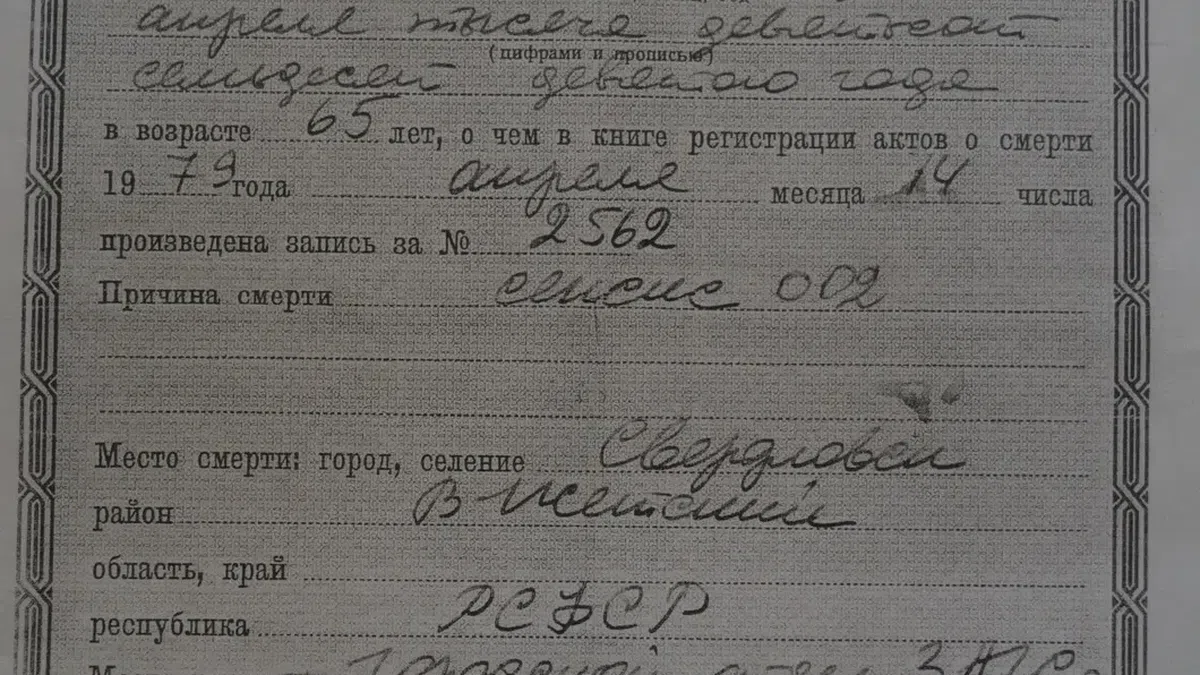 апреля тысяча девятьсот
(цифрами и прописью)
семьдесят девятого года
в возрасте 65 лет, о чем в книге регистрации актов о смерти
19 79 года апреля месяца 14 числа
произведена запись за № 2562
Причина смерти сепсис 002
Место смерти: город, селение Свердловск
район В Исетский
область, край
республика РСФСР
Городской отдел ЗАГС